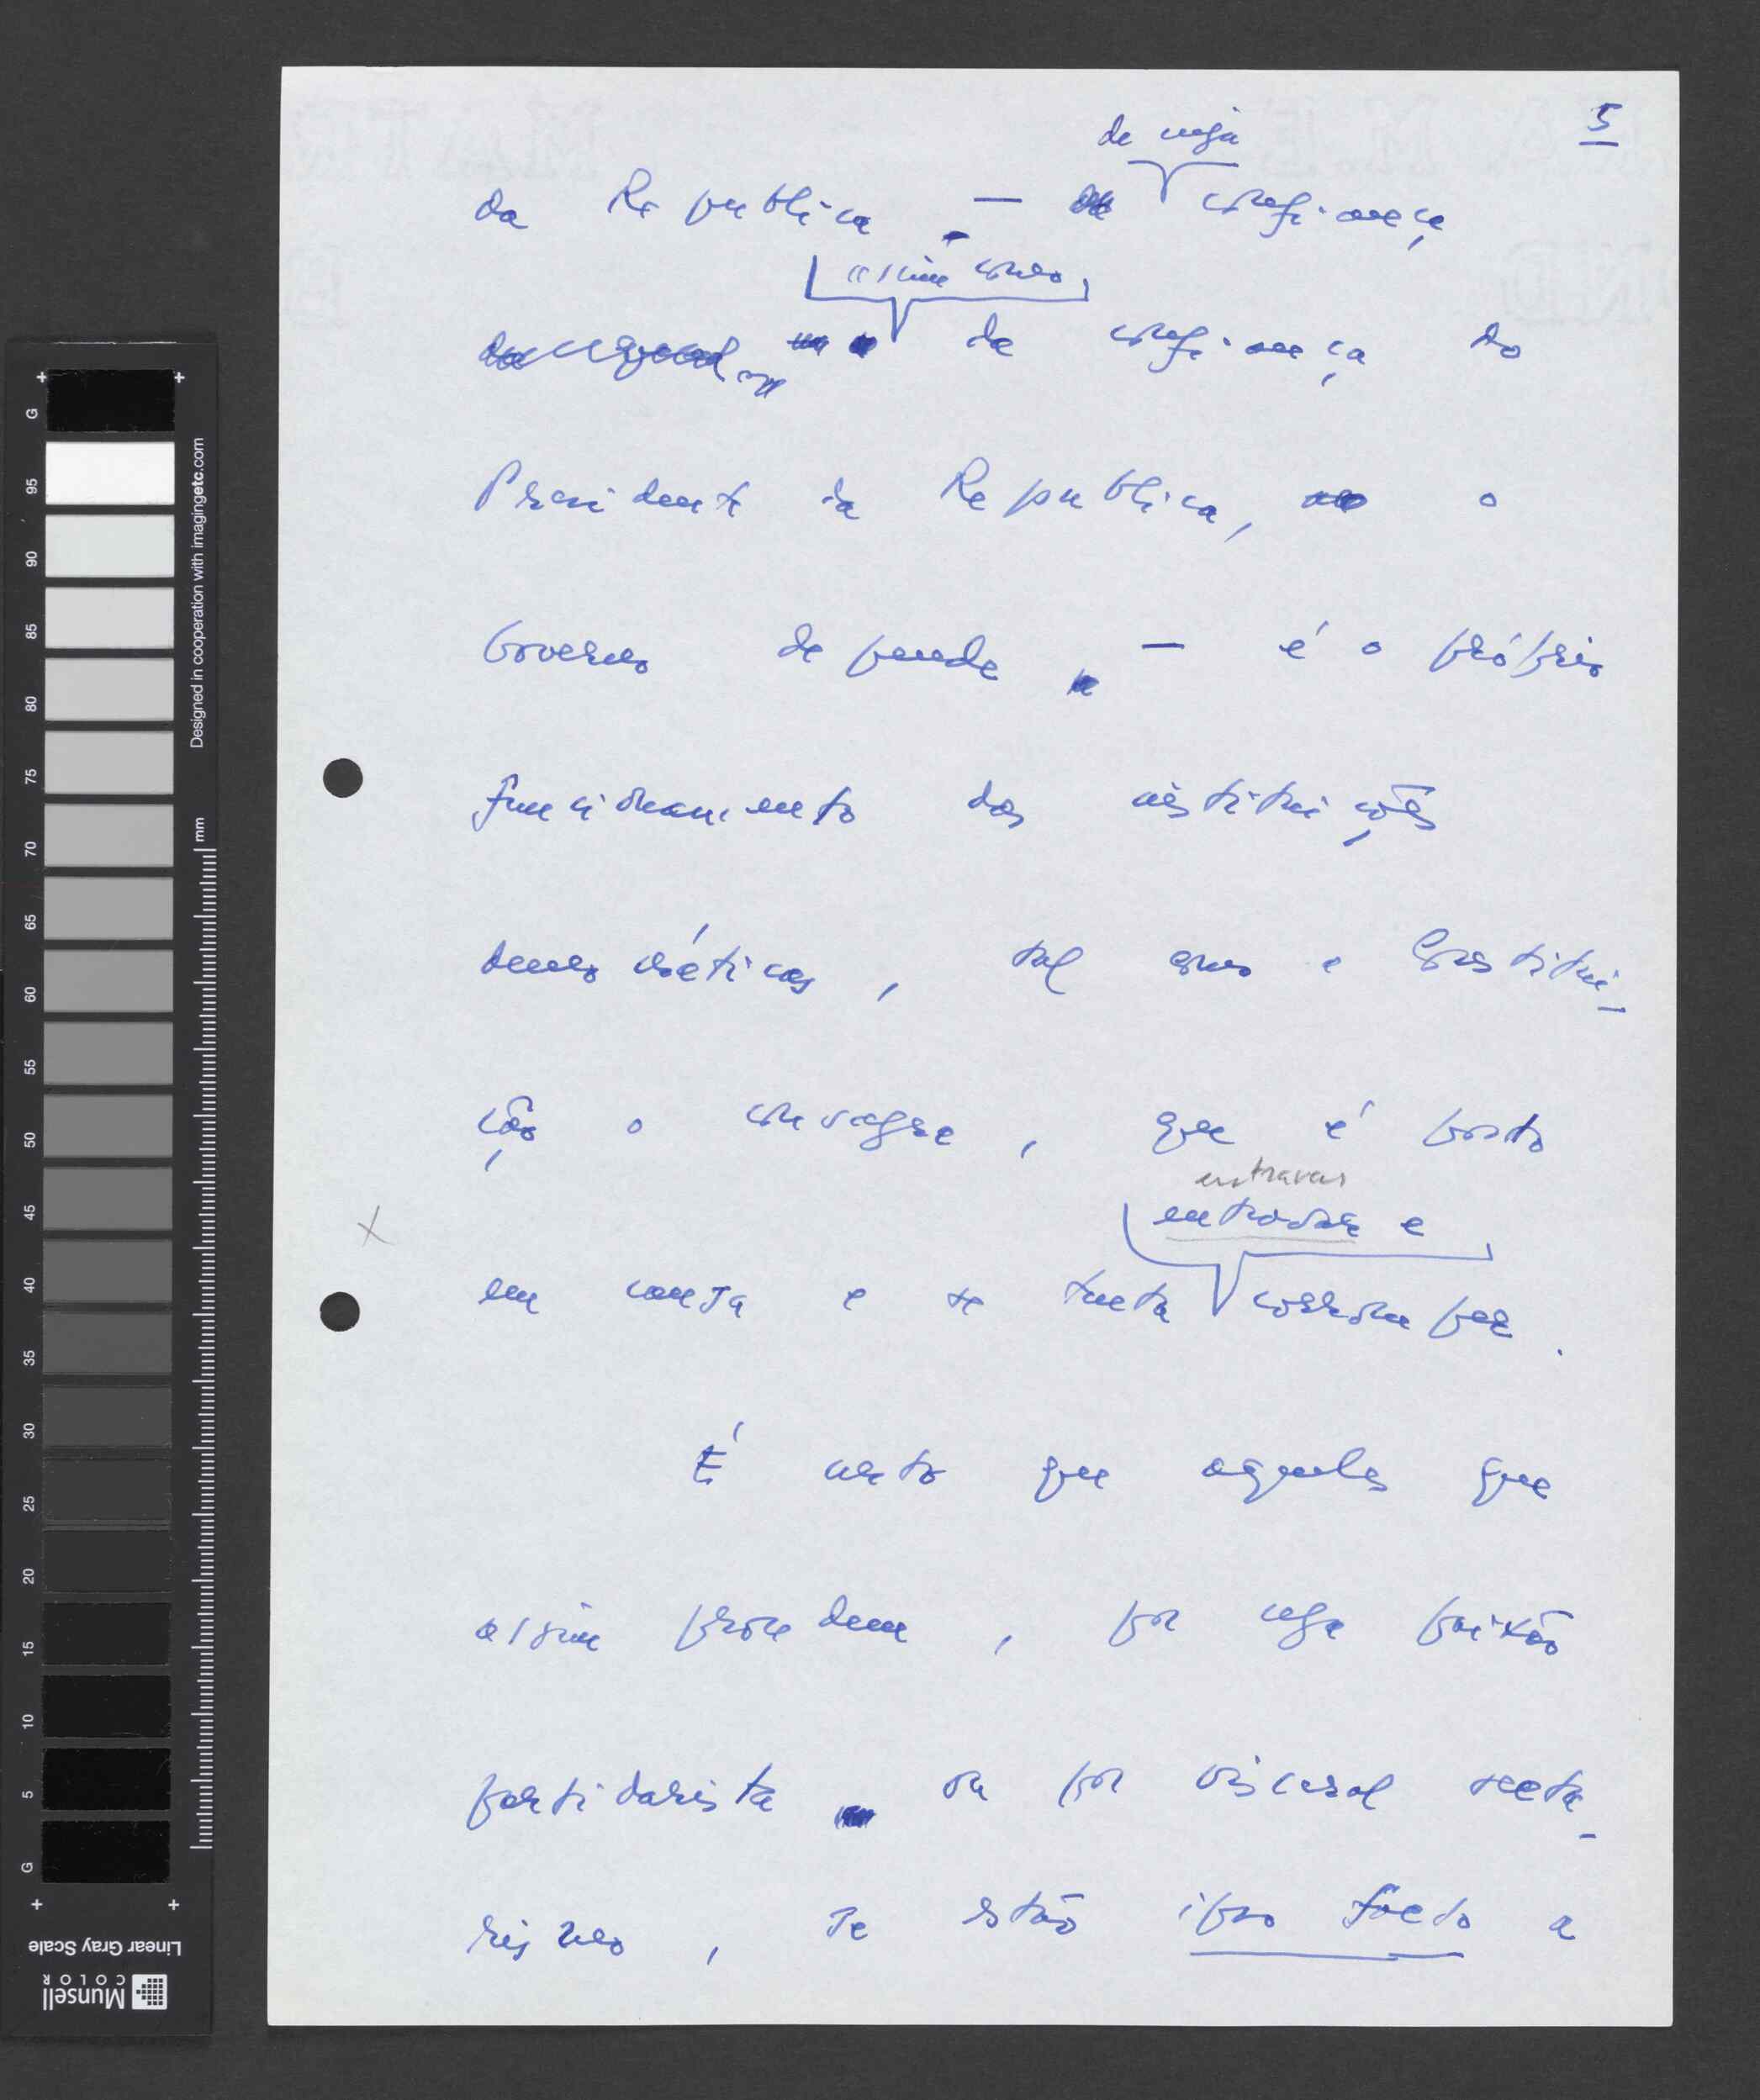 5
de cuja
da Republica — confiança
assim como
da confiança do
Presidente da Republica, o
Governo depende — é o próprio
funcionamento das instituições
democráticas, tal como a Constitui-
ção o consagra, que é posto
entravar
entravar e
em causa e se tenta corromper.
X
É certo que aqueles que
assim procedem, por cega paixão
partidarista ou por visceral secta-
rismo, se estão ipso facto a
G
95
90
85
80
75
70
65
60
55
50
45
40
35
30
25
20
15
10
5
G
Designed in cooperation with imagingetc.com
mm
Linear Gray Scale
Munsell
COLOR